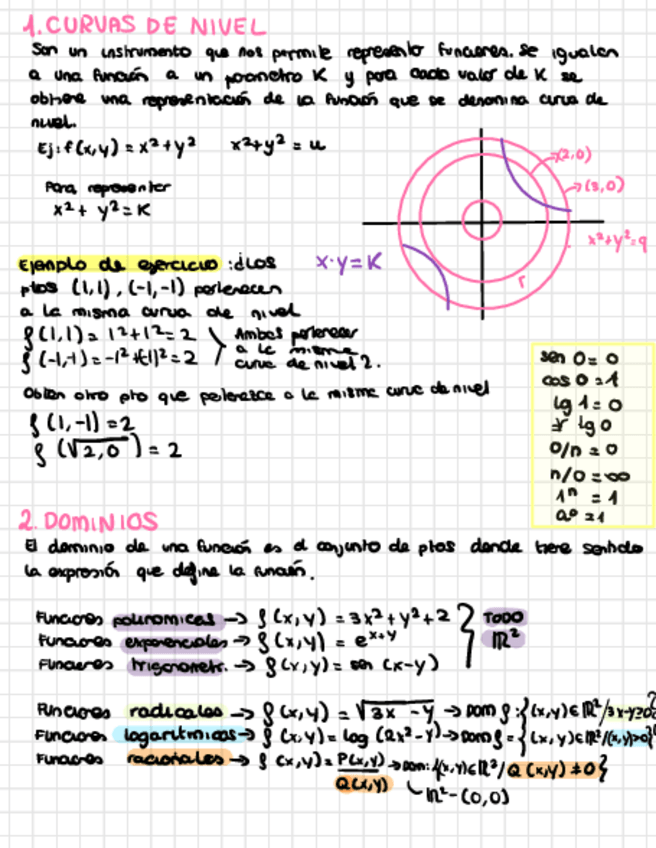 1. CURVAS DE NIVEL
Son un instrumento que nos permite represento funciones. Se igualan
a una función a un parametro K y para cada valor de K se
obtiene una representación de la función que se denomina curva de
nivel.
Ej: f(x,y) = x²+y² x²+y² = u
Para representar
x² + y² = K
(2,0)
(3,0)
x²+y²=9
r
x·y=K
Ejemplo de ejercicio: ¿Los
ptos (1,1), (-1,-1) pertenecen
a la misma curva de nivel
f(1,1) = 1²+1² = 2
f(-1,-1) = -1²+(-1)² = 2
Ambos pertenecen
a la misma
curva de nivel 2.
Obten otro pto que pertenezca a la misma curva de nivel
f(1,-1) = 2
f(√2,0) = 2
sen 0 = 0
cos 0 = 1
lg 1 = 0
∄ lg 0
0/n = 0
n/0 = ∞
1ⁿ = 1
a⁰ = 1
2. DOMINIOS
El dominio de una función es el conjunto de ptos donde tiene sentido
la expresión que define la función.
Funciones polinomicas → f(x,y) = 3x²+y²+2
Funciones exponenciales → f(x,y) = e^x+y
Funciones trigonometr. → f(x,y) = sen (x-y)
TODO
ℝ²
Funciones radicales → f(x,y) = √3x-y → Dom f: {(x,y)∈ℝ²/3x-y≥0}
Funciones logaritmicas → f(x,y) = log (2x²-y) → Dom f = {(x,y)∈ℝ²/(x,y)>0}
Funciones racionales → f(x,y) = P(x,y)/Q(x,y) → Dom: {(x,y)∈ℝ²/Q(x,y)≠0}
ℝ²-(0,0)